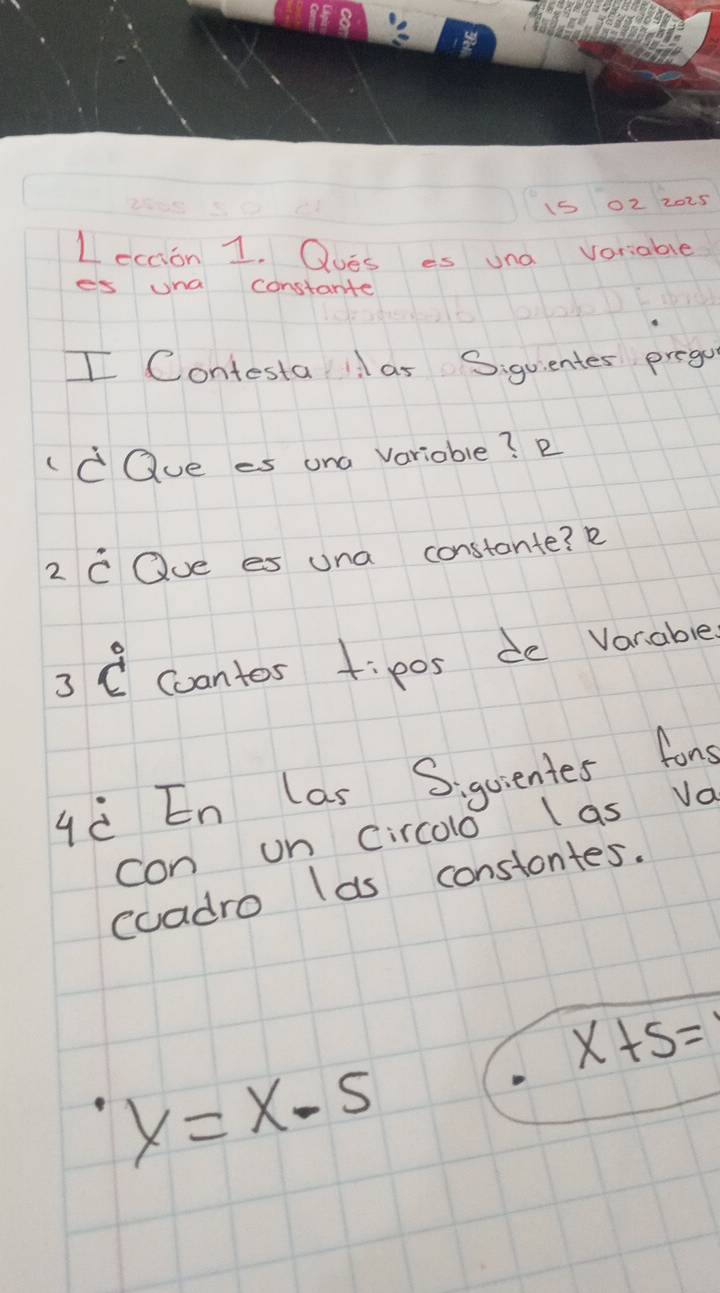 15 02 2025
Lección 1. Qués es una variable
es una constante
I Contesta las Siguientes pregun
1 ¿Que es una variable? R
2 ¿Que es una constante? R
3 ¿Cuantos tipos de Variables
4 ¿ En las Siguientes fons
con un circolo las va
cuadro las constantes.
• y = x - 5
• x + 5 =